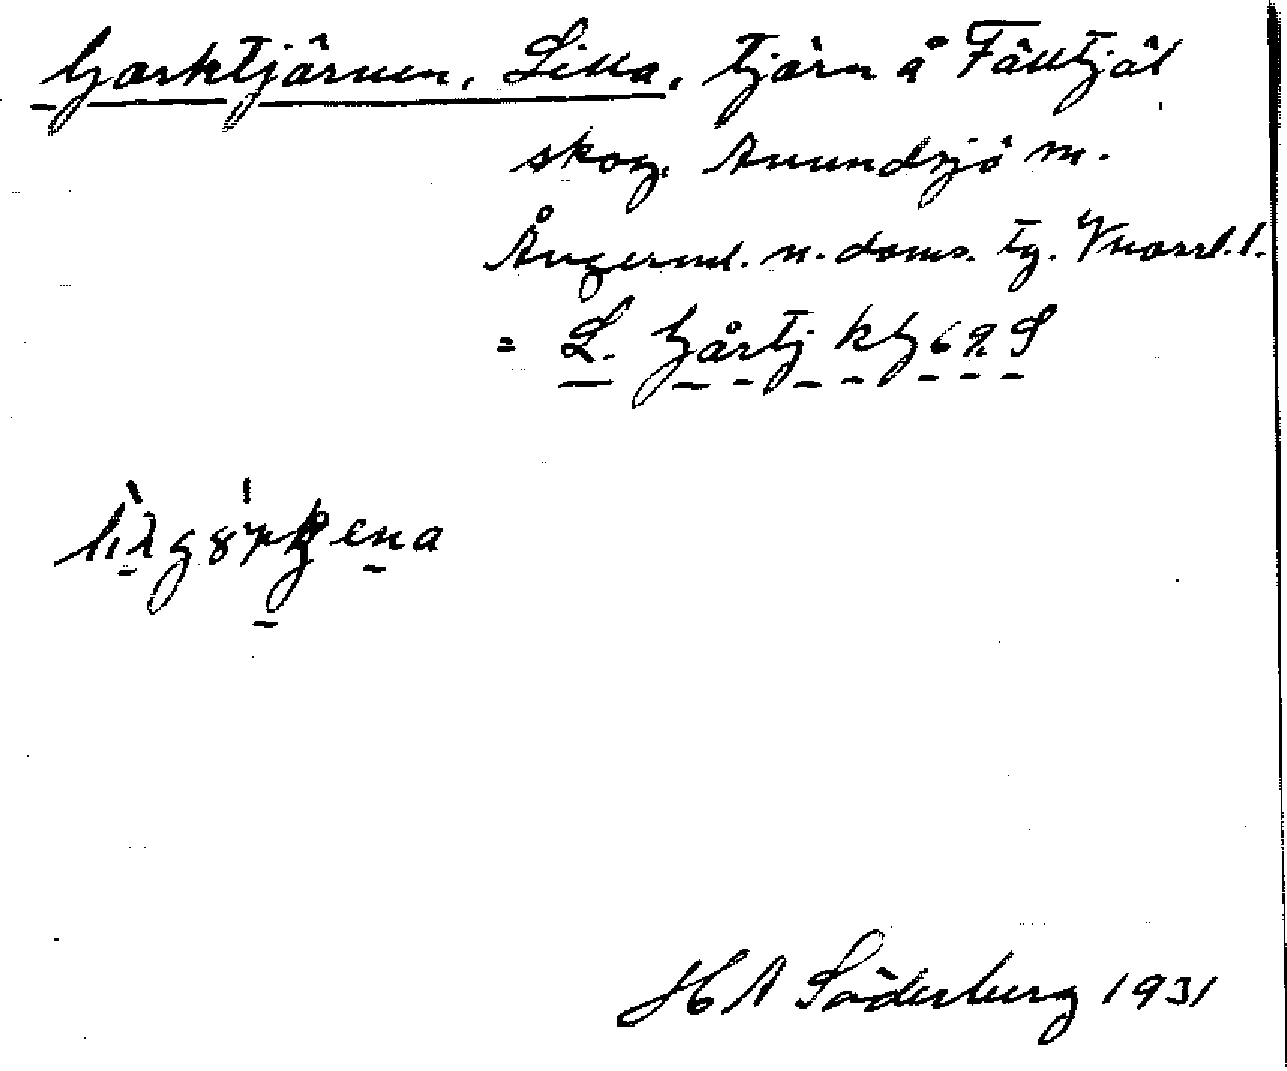 Gorktjärnen, Lilla, tjärn å Fälltjäl
skog. Anundsjö sn.
Ångerml. n. doms. tg. Vnorrl. l.
= L. Gårtj k G 62 S
H A Söderberg 1931